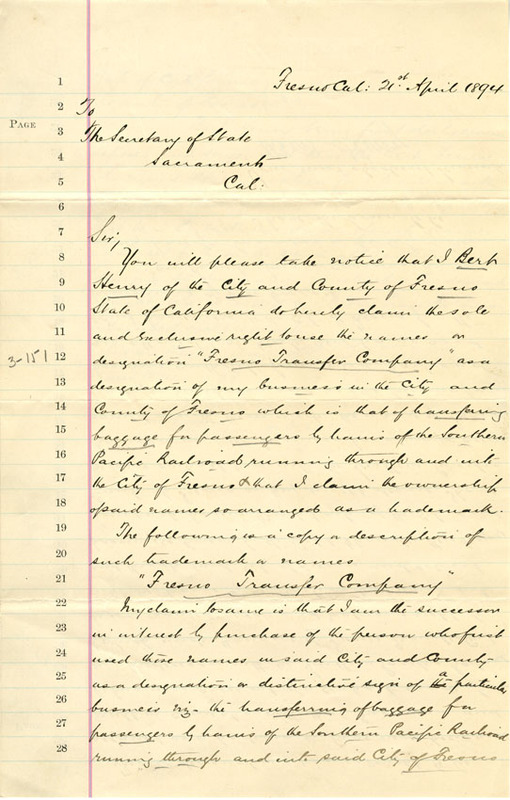 1
Fresno Cal: 21st April 1894
2
To
PAGE
3
The Secretary of State
4
Sacramento
5
Cal.
6
7
Sir,
8
You will please take notice that I Bert
9
Henry of the City and County of Fresno
10
State of California do hereby claim the sole
11
and exclusive right to use the names or
3-151
12
designation "Fresno Transfer Company" as a
13
designation of my business in the City and
14
County of Fresno which is that of transfering
15
baggage for passengers by trains of the Southern
16
Pacific Railroad running through and into
17
the City of Fresno & that I claim the ownership
18
of said names so arranged as a trademark.
19
The following is a copy or description of
20
such trademark or names
21
"Fresno Transfer Company"
22
My claim to same is that I am the successor
23
in interest by purchase of the person who first
24
used those names in said City and County
25
as a designation or distinctive sign of a particular
26
business viz - the transferring of baggage for
27
passengers by trains of the Southern Pacific Railroad
28
running through and into said City of Fresno